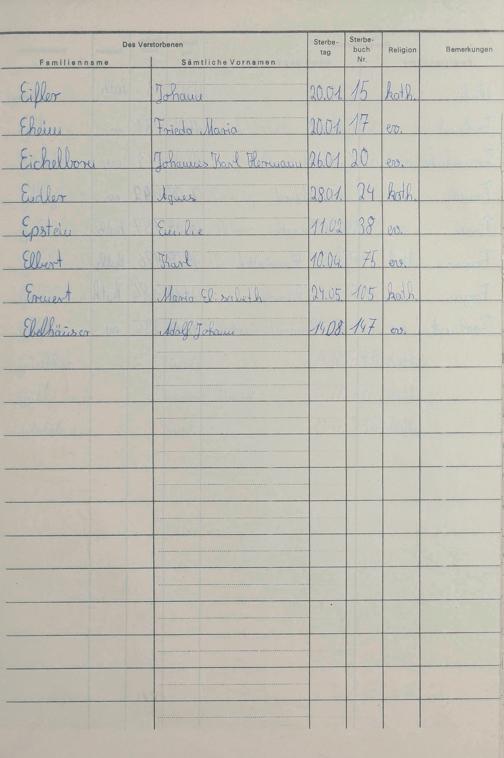 Des Verstorbenen Sterbe-tag Sterbe-buch Nr. Religion Bemerkungen
Familienname Sämtliche Vornamen
Eifler Johann 20.01. 15 kath.
Eheim Frieda Maria 20.01. 17 ev.
Eichelborn Johannes Karl Hermann 26.01 20 ev.
Endler Agnes 28.01. 24 kath.
Epstein Emilie 11.02 38 ev.
Elbert Karl 10.04. 75 ev.
Maria Elisabeth 24.05. 105 kath.
Ebelhäuser Adolf Johann 14.08. 147 ev.